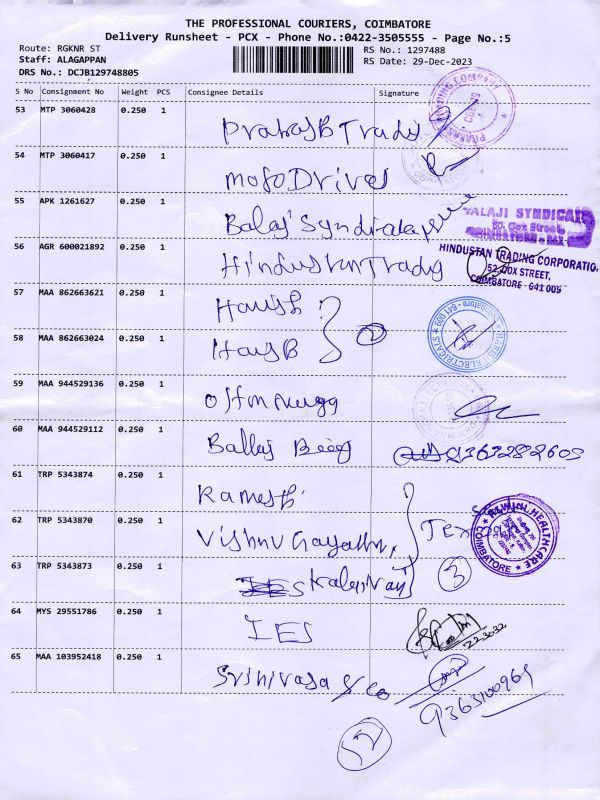 THE PROFESSIONAL COURIERS, COIMBATORE
Delivery Runsheet - PCX - Phone No.:0422-3505555 - Page No.:5
Route: RGKNR ST RS No.: 1297488
Staff: ALAGAPPAN RS Date: 29-Dec-2023
DRS No.: DCJB129748805
S No Consignment No Weight PCS Consignee Details Signature
53 MTP 3060428 0.250 1
54 MTP 3060417 0.250 1
MotoDrives
55 APK 1261627 0.250 1
Balaji
BALAJI SYNDICATE
80, Cox Street,
COIMBATORE
56 AGR 600021892 0.250 1
Hindustan Tradig
HINDUSTAN TRADING CORPORATIO
52, COX STREET,
COIMBATORE - 641 005
57 MAA 862663621 0.250 1
58 MAA 862663024 0.250 1
2
59 MAA 944529136 0.250 1
60 MAA 944529112 0.250 1
9363282605
61 TRP 5343874 0.250 1
Ramesh
62 TRP 5343870 0.250 1
HEALTHCARE
COIMBATORE
63 TRP 5343873 0.250 1
3
64 MYS 29551786 0.250 1
IES
65 MAA 103952418 0.250 1
Srinivasa & Co
52